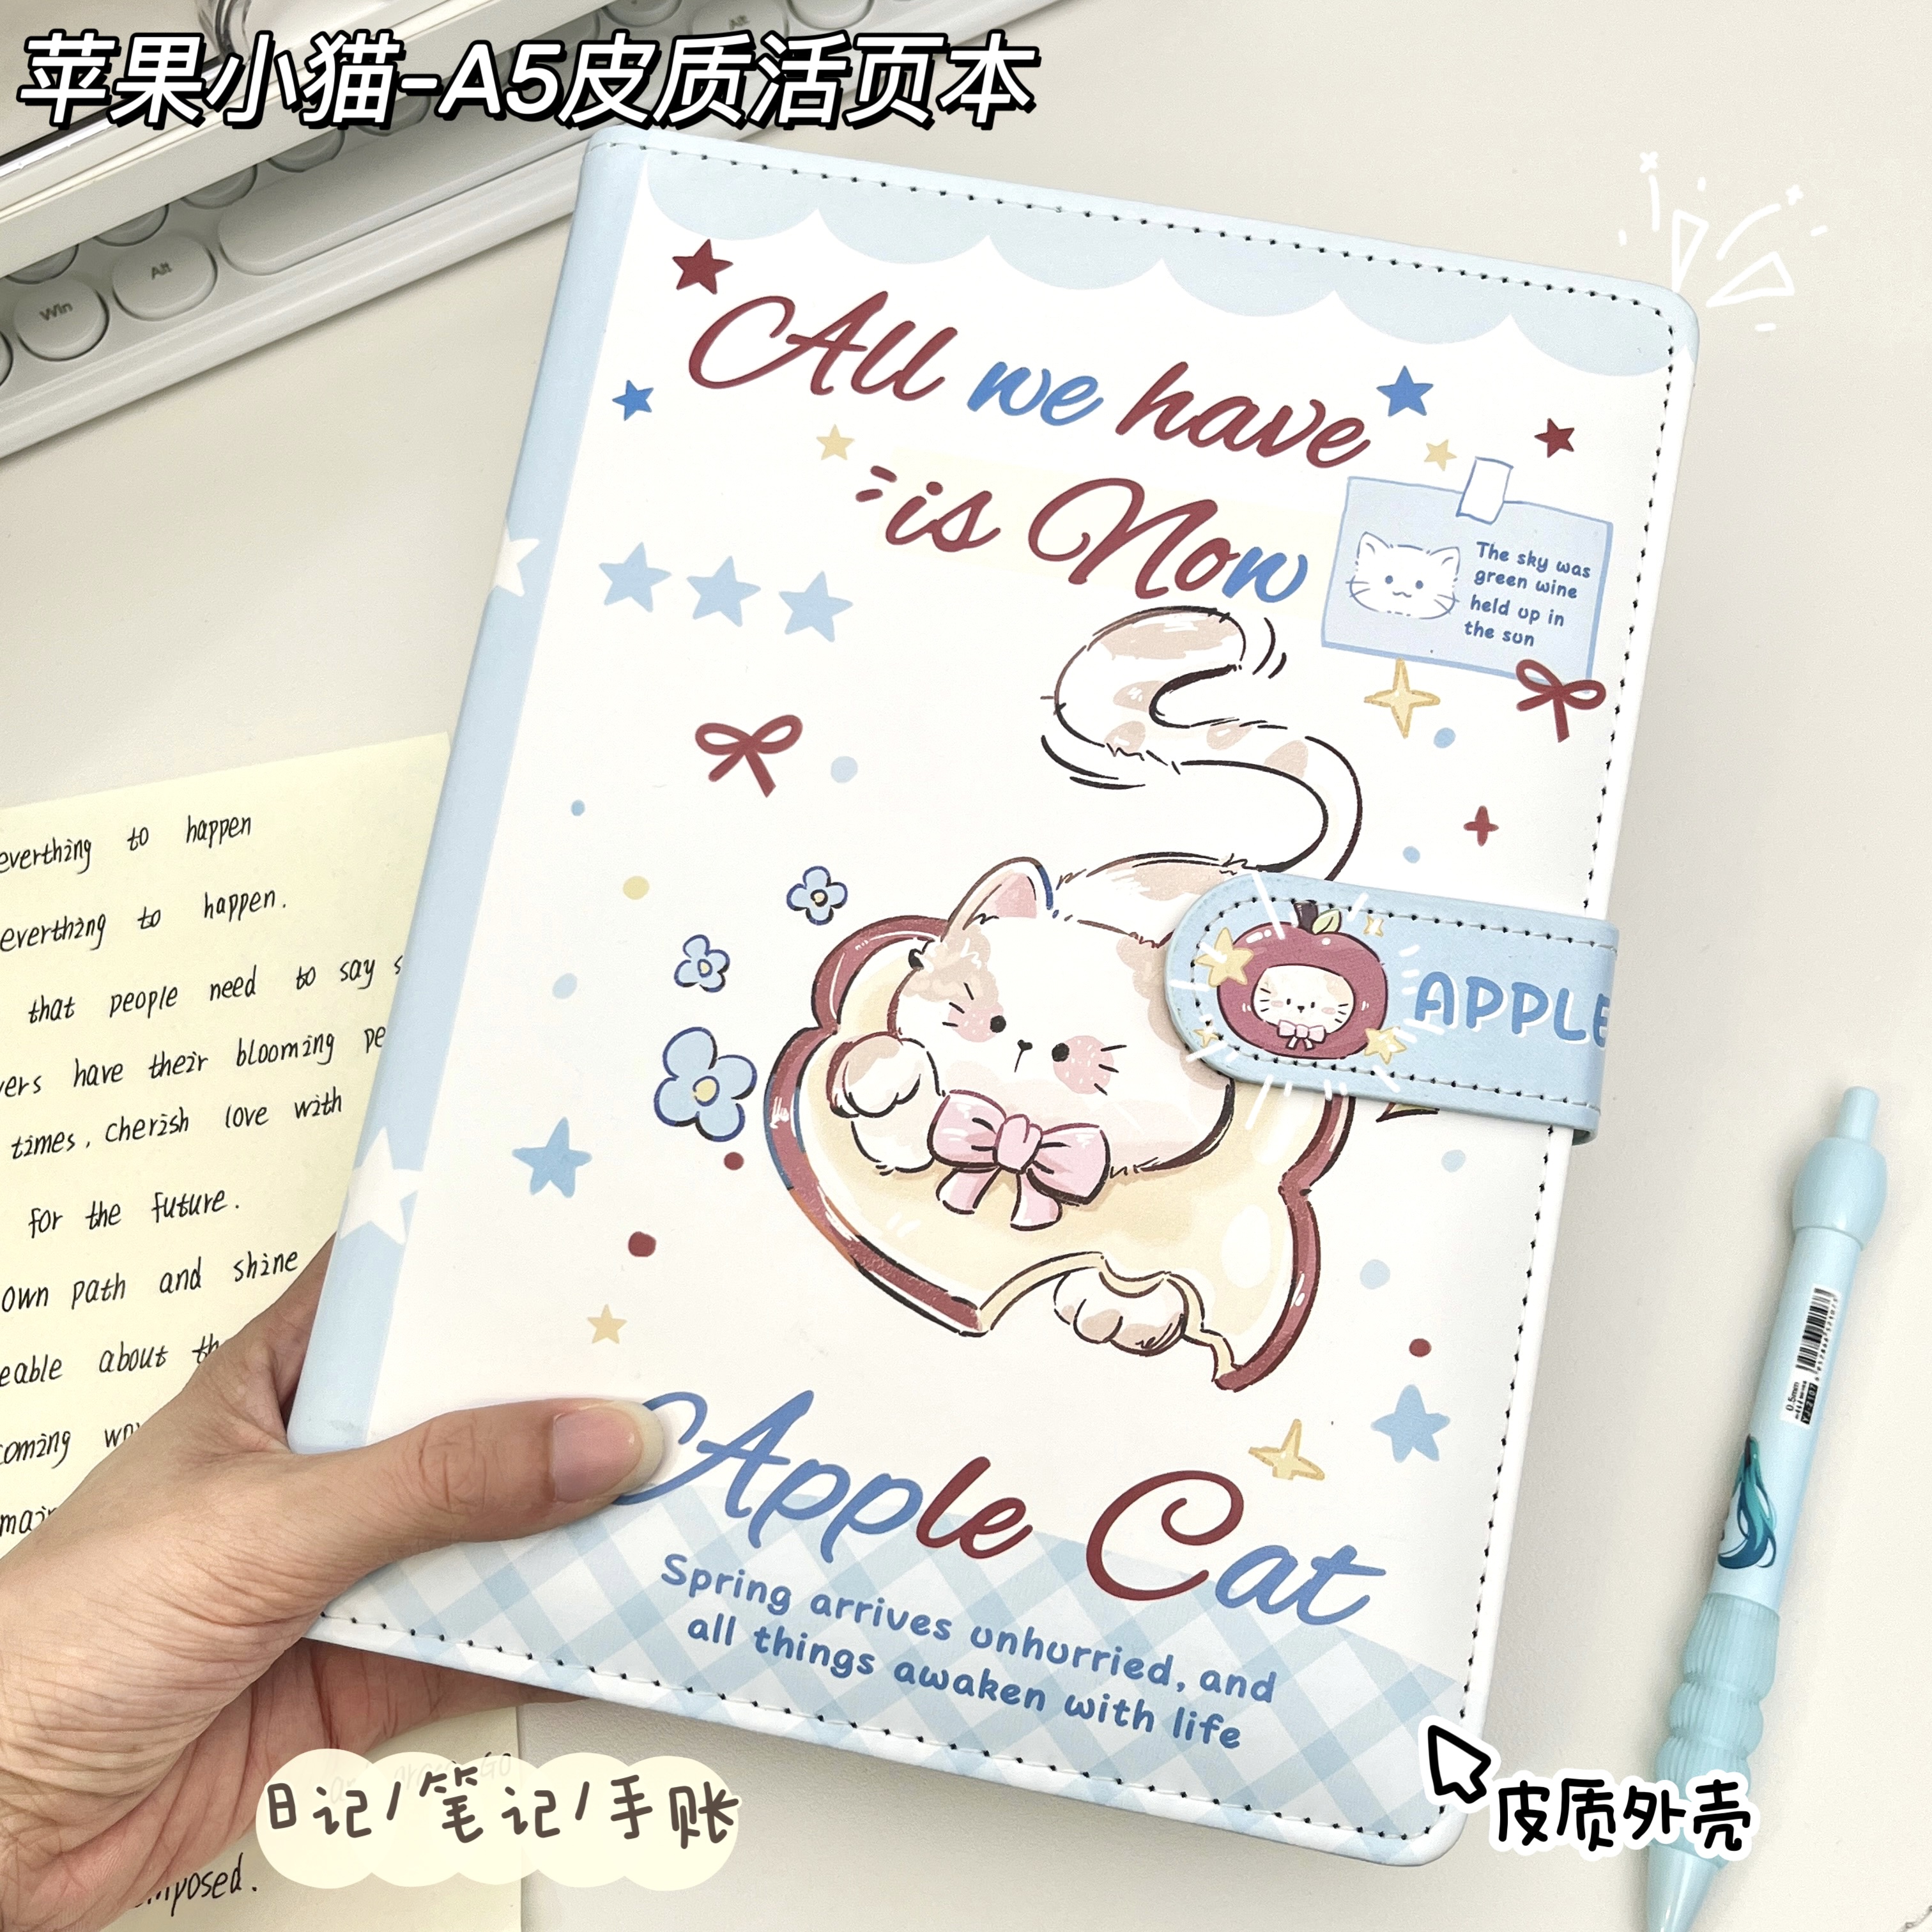 苹果小猫-A5皮质活页本
Alt
Win
Alt
All we have
is Now
The sky was
green wine
held up in
the sun
APPLE
everthing to happen
everthing to happen.
that people need to say
have their blooming
times, cherish love with
for the future.
own path and shine
about
Apple Cat
Spring arrives unhurried, and
all things awaken with life
0.5mm
日记/笔记/手账
皮质外壳